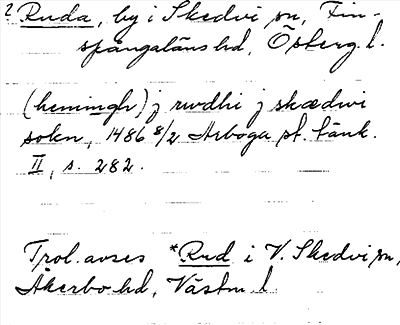 ? Ruda, by i Skedvi sn, Fin-
spångaläns hd, Österg. l.
(heningh) j rwdhi j skædwi
sokn, 1486 8/2 Arboga st. tänk.
II, s. 282.
Trol. avses *Rud i V. Skedvi sn,
Åkerbo hd, Västm. l.